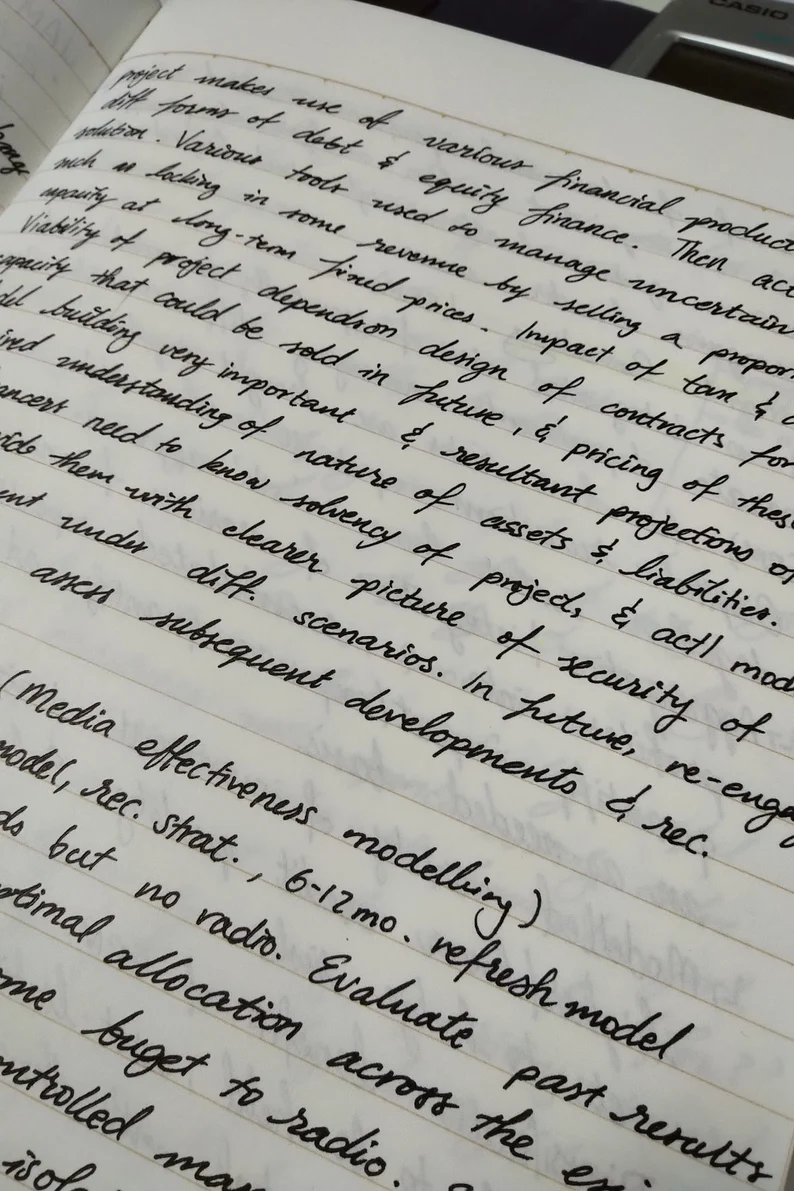 CASIO
project makes use of various financial product
diff forms of debt & equity finance. Then act
solution. Various tools used to manage uncertain
such as locking in some revenue by selling a propor
capacity at long-term fixed prices. Impact of tax &
Viability of project depends on design of contracts for
apacity that could be sold in future, & pricing of thes
del building very important & resultant projections of
ired understanding of nature of assets & liabilities.
ancers need to know solvency of project, & act'l mod
vide them with clearer picture of security of
ent under diff. scenarios. In future, re-enga
assess subsequent developments & rec.
(Media effectiveness modelling)
model, rec. strat., 6-12 mo. refresh model
ds but no radio. Evaluate past results
ptimal allocation across the exi
me buget to radio.
ntrolled mar
isola